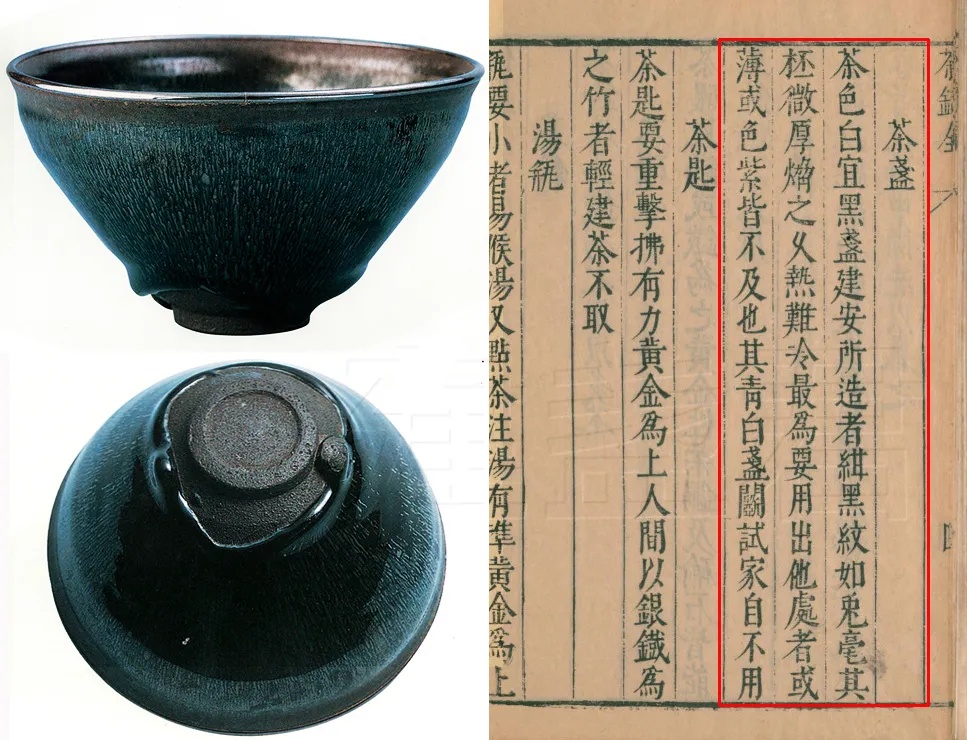 茶錄全
茶盞
茶色白宜黑盞建安所造者紺黑紋如兎毫其
柸微厚熁之乆熱難冷最爲要用出他處者或
薄或色紫皆不及也其青白盞鬭試家自不用
茶匙
茶匙要重擊拂有力黃金爲上人間以銀鐵爲
之竹者輕建茶不取
湯缾
缾要小者易候湯又點茶注湯有準黃金爲上